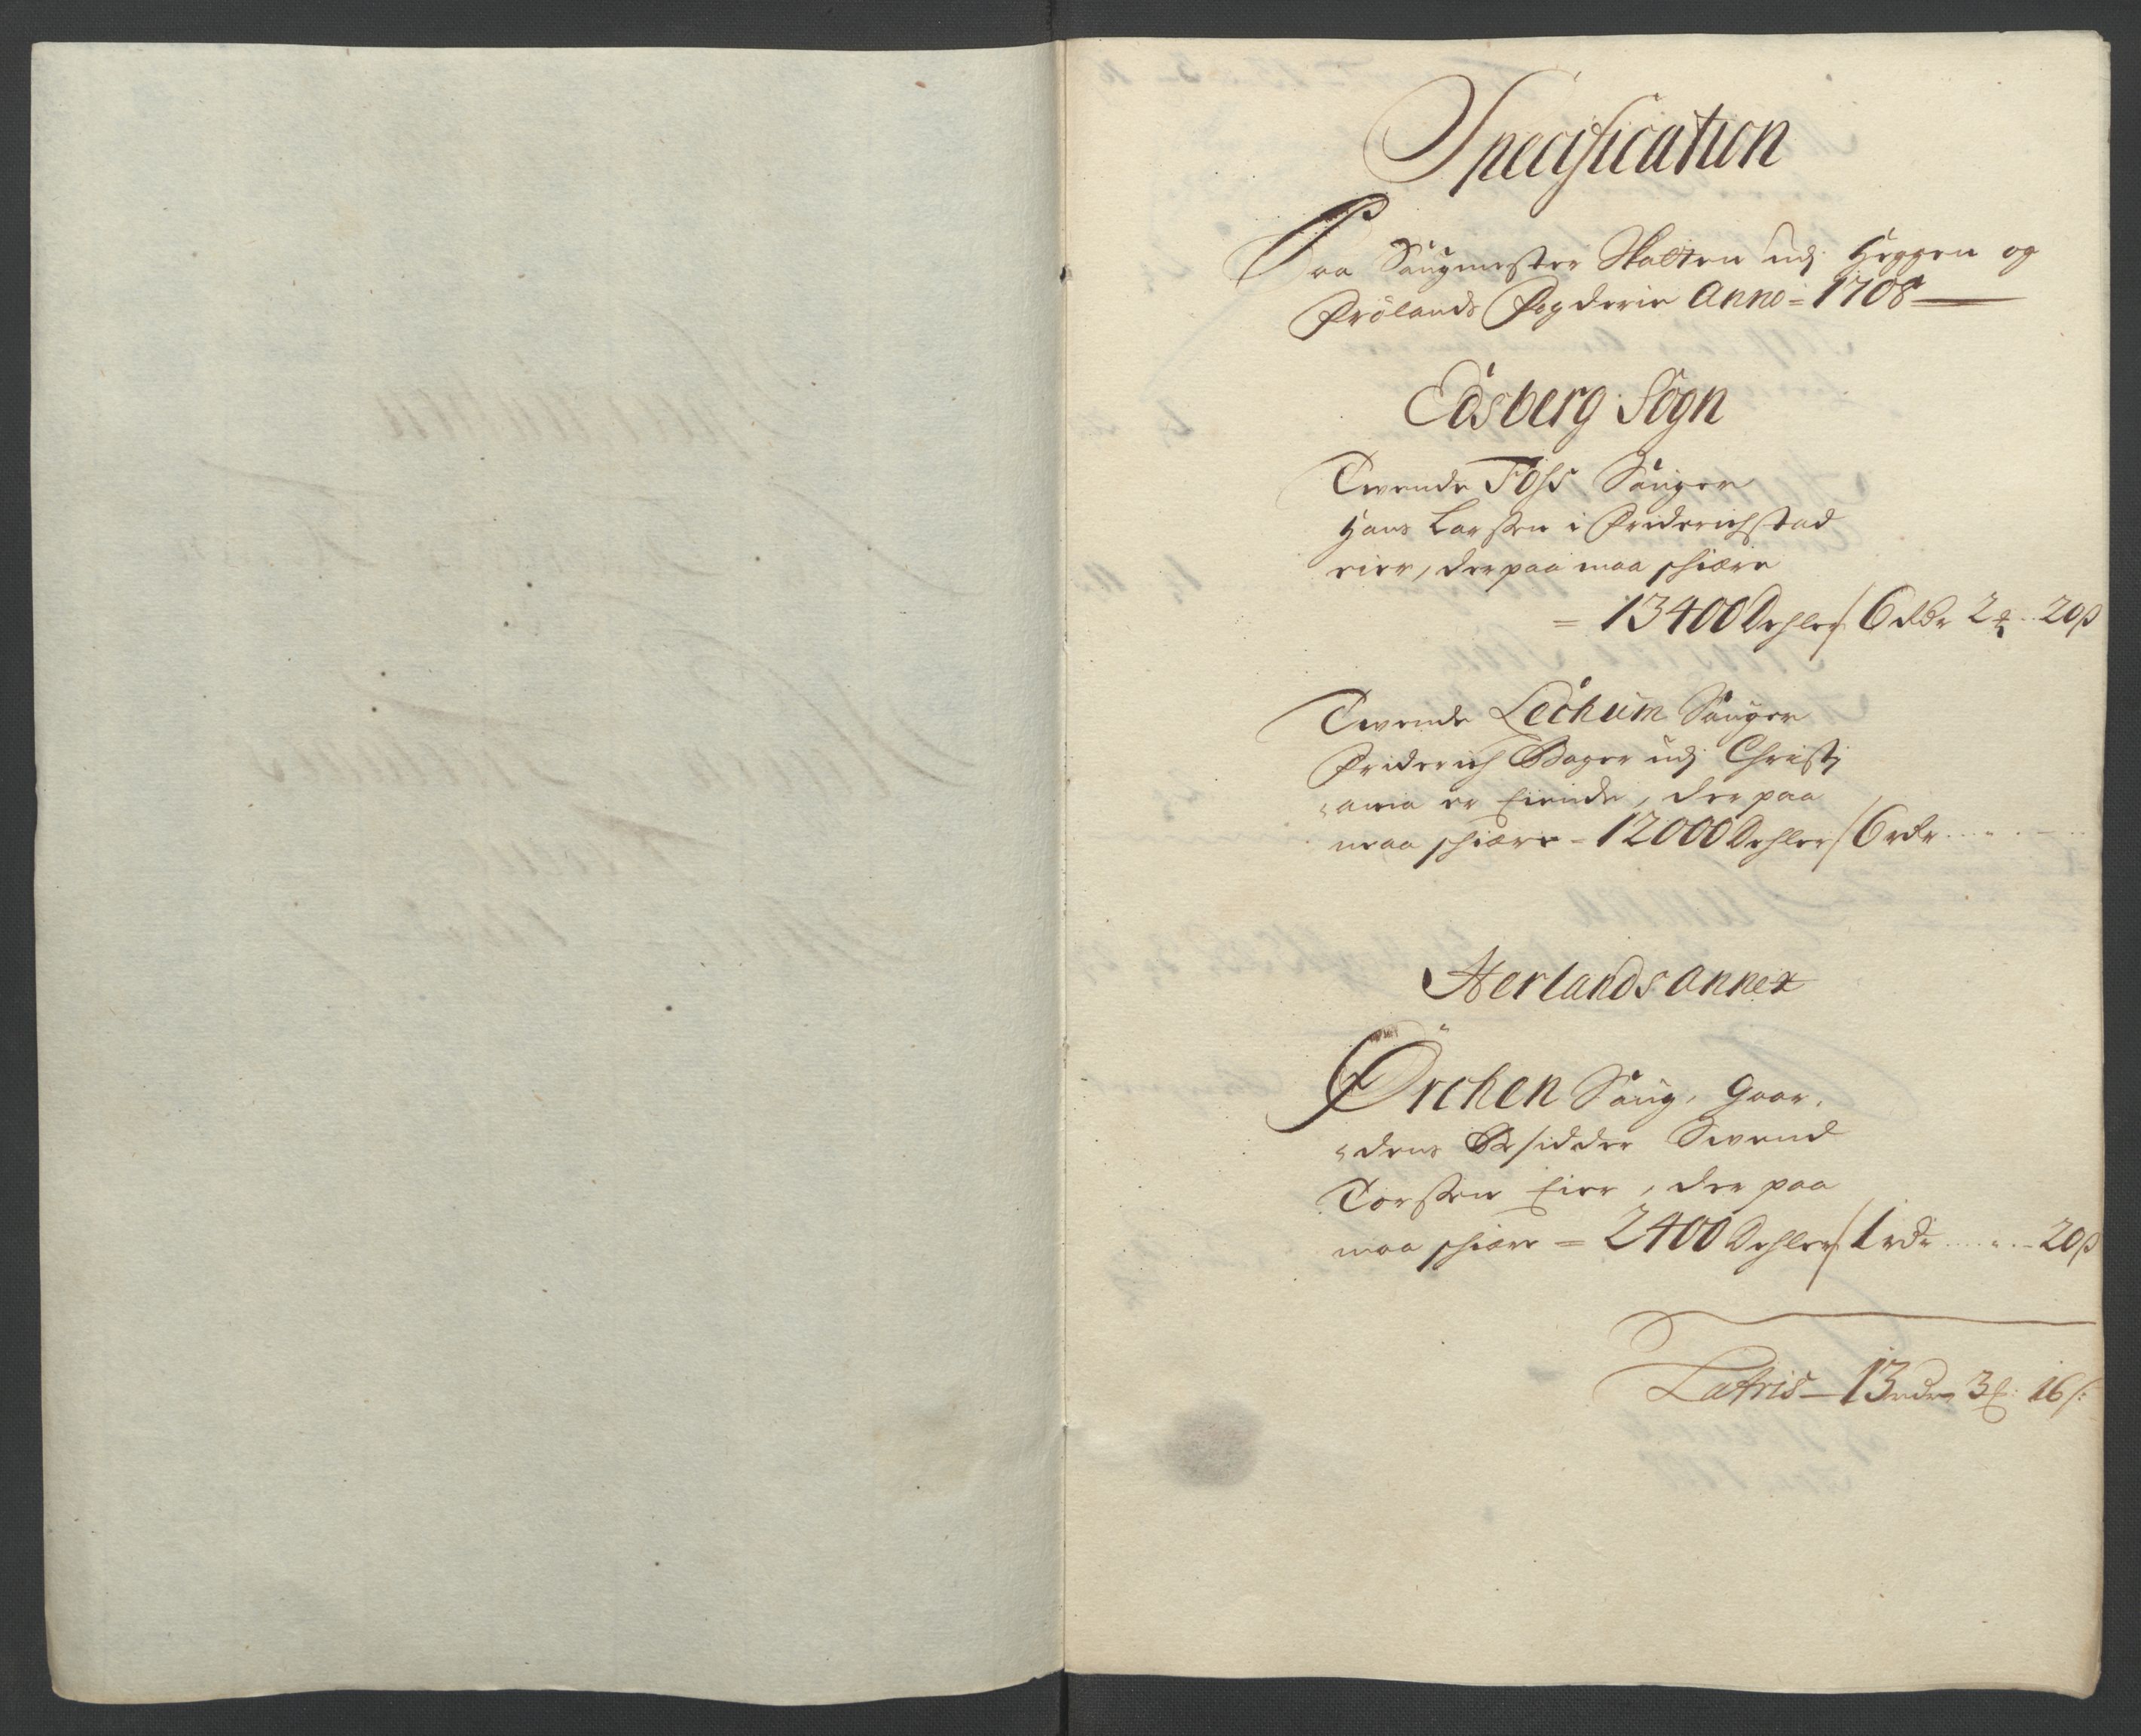 Specification
Paa Saugmester Skatten udj Heggen og
Frølands Fogderie Anno = 1708
Edsberg Sogn
Tvende Foss Sauger
Hans Larssen i Friderichstad
eier, der paa maa schiære
= 13400 Dehler / 6 rdr 2 ℔ .. 20 β
Tvende Lechum Sauger
Friderich Bager udj Christi
ania er Eiende, der paa
maa schiære = 12000 Dehler / 6 rdr
Herlands annex
Örchen Saug, Gaar-
dens Besidder Svend
Torssen Eier, der paa
maa schiære = 2400 Dehler / 1 rdr .... 20 β
Latris — 13 rdr 3 ℔: 16 β: